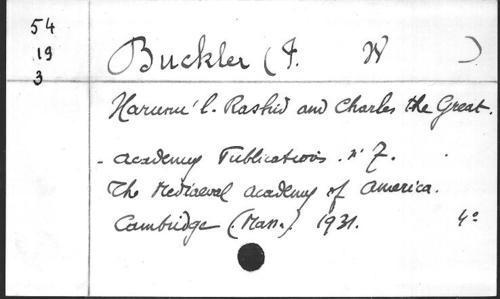 54
19
3
Buckler (F. W )
Harunu'l-Rashid and Charles the Great.
- Academy Publications. n° 7.
The Mediaeval academy of America.
Cambridge (Mass.). 1931. 4°